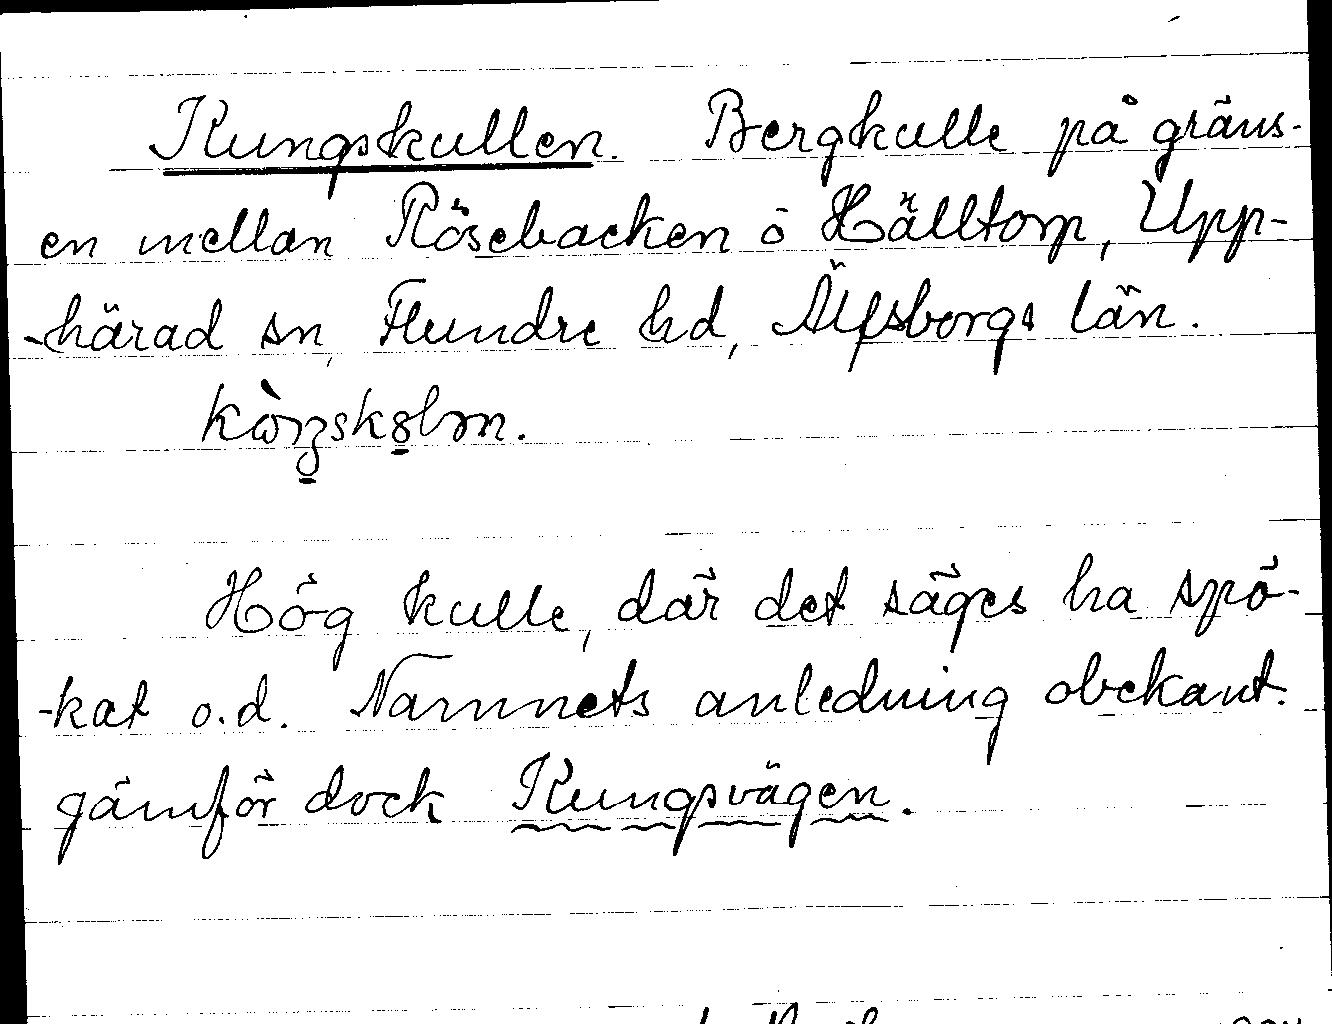 Kungskullen. Bergkulle på gräns-
en mellan Rösebacken o Hälltorp, Upp-
-härad sn, Flundre hd, Älfsborgs län.
Hög kulle, där det säges ha spö-
-kat o.d. Namnets anledning obekant.
jämför dock Kungsvägen.